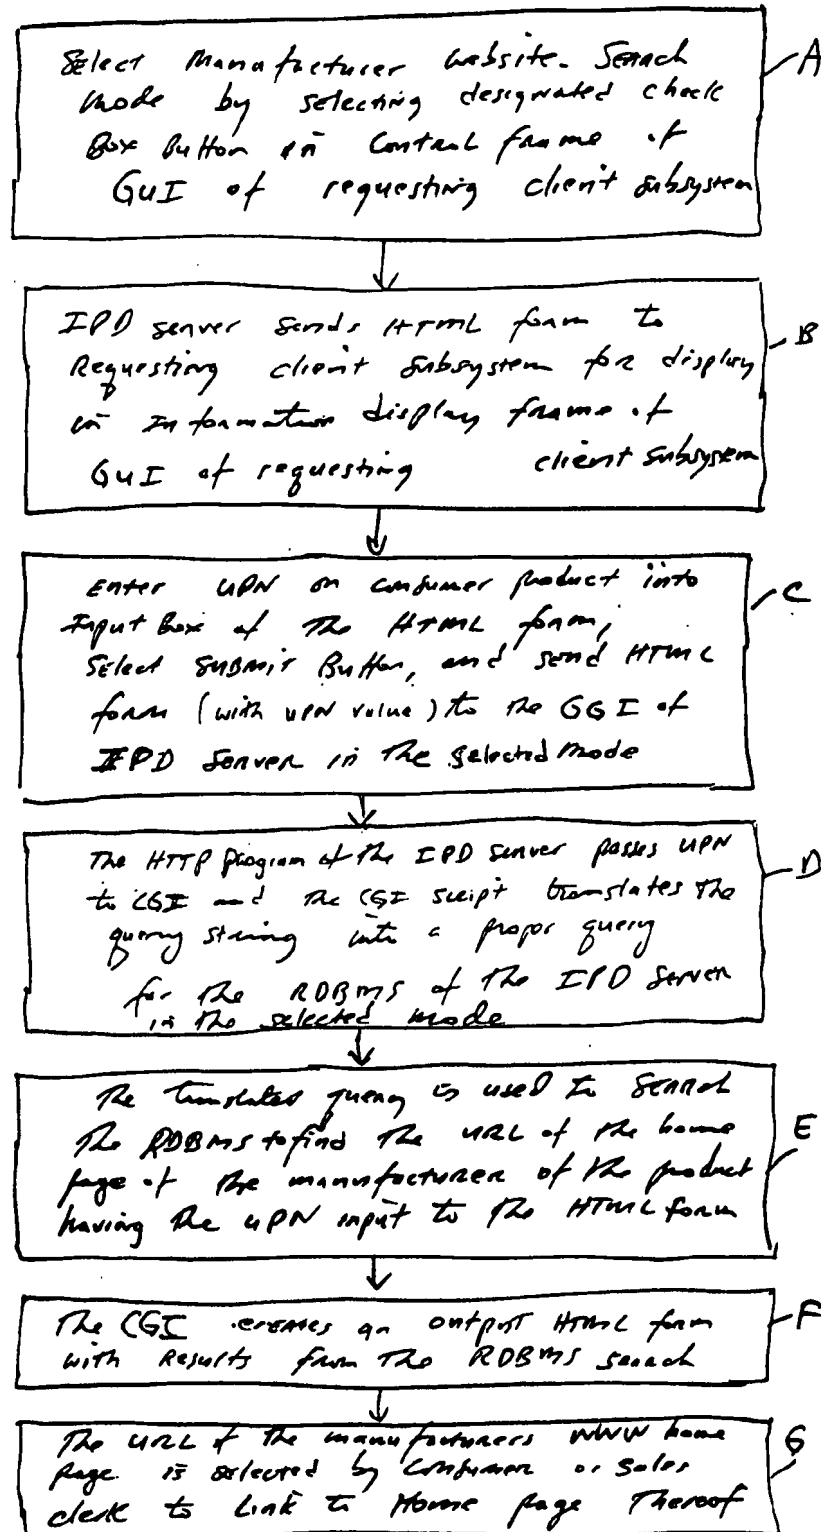 Select Manufacturer Website. Search
Mode by selecting designated check
Box Button in Control frame of
GUI of requesting client subsystem
A
IPD server sends HTML form to
Requesting client subsystem for display
in Information display frame of
GUI of requesting client subsystem
B
Enter UPN on consumer product into
Input Box of The HTML form,
Select SUBMIT Button, and send HTML
form (with UPN value) to the GGI of
IPD Server in The selected Mode
C
The HTTP program of the IPD server passes UPN
to CGI and the CGI script translates the
query string into a proper query
for the RDBMS of the IPD Server
in the selected mode
D
The translated query is used to Search
The RDBMS to find the URL of the home
page of the manufacturer of the product
having the UPN input to the HTML form
E
The CGI creates an output HTML form
with Results from The RDBMS search
F
The URL of the manufacturers WWW home
Page is selected by Consumer or Sales
clerk to Link to Home page Thereof
G